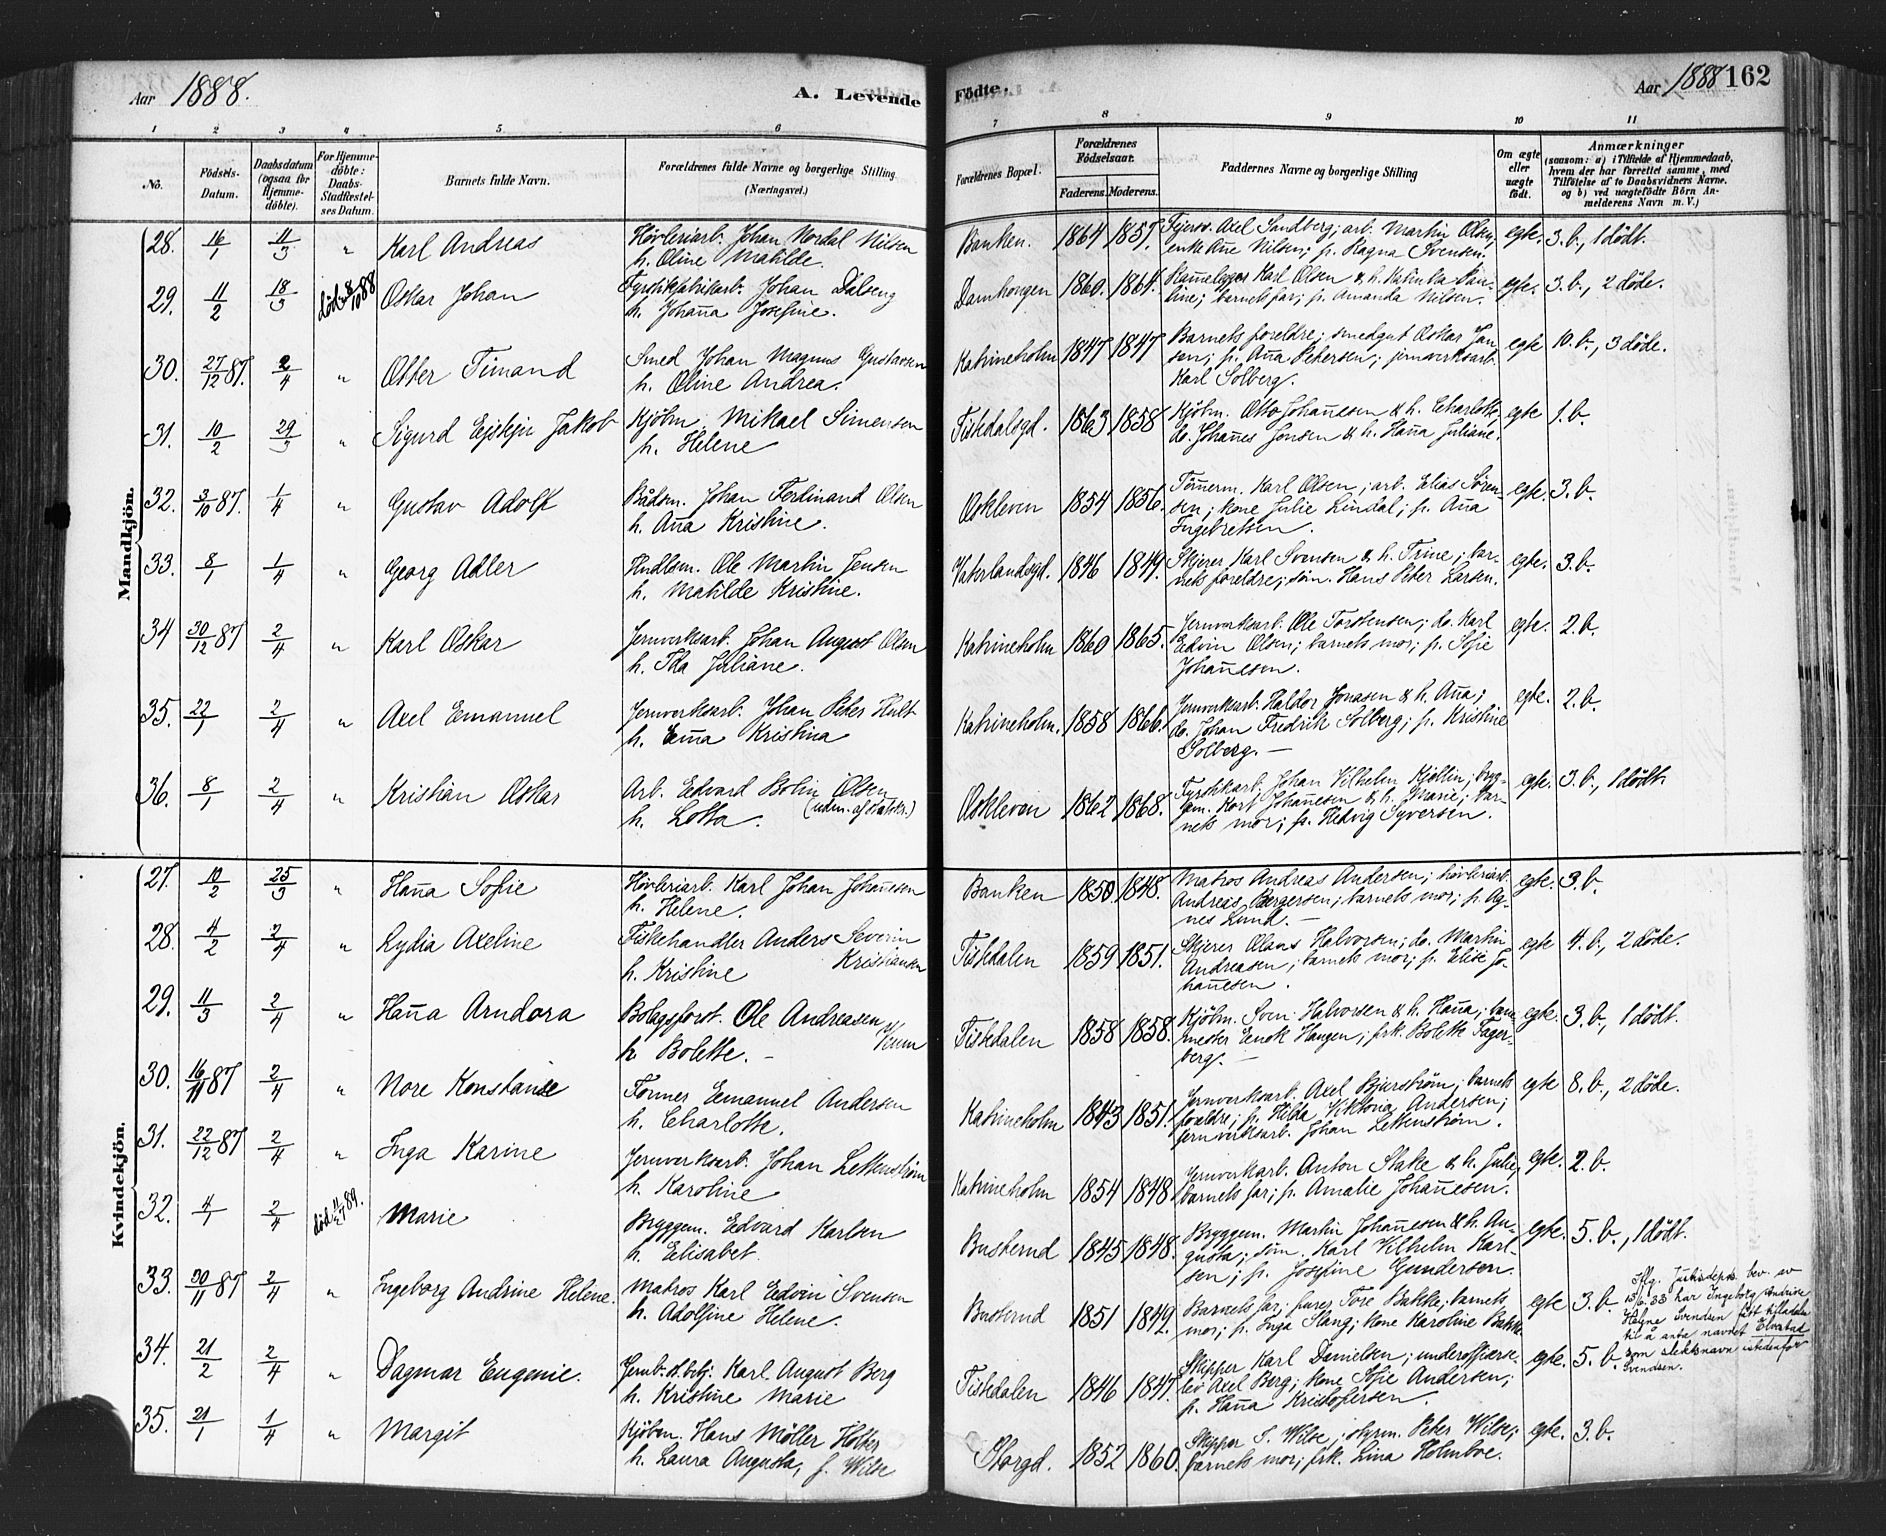 Aar 1888.
A. Levende
Födte.
Aar 1888 162
1 2 3 4 5 6 7 8 9 10 11
No.
Födsels-
Datum.
Daabsdatum
(ogsaa for
Hjemme-
döbte).
For Hjemme-
döbte:
Daabs-
Stadfæstel-
ses Datum.
Barnets fulde Navn.
Forældrenes fulde Navne og borgerlige Stilling
(Næringsvei.)
Forældrenes Bopæl.
Forældrenes
Födselsaar.
Faderens. Moderens.
Faddernes Navne og borgerlige Stilling
Om ægte
eller
uægte
födt.
Anmærkninger
(saasom: a) i Tilfælde af Hjemmedaab,
hvem der har forrettet samme, med
Tilföielse af to Daabsvidners Navne.
og b) ved uægtefödte Börn An-
melderens Navn m. V.)
Mandkjön.
28. 16/1 11/3 " Karl Andreas
Hövleriarb. Johan Nordal Nilsen
h. Oline Matilde.
Banken. 1864 1857.
Axel Sandberg; arb. Martin Olsen;
enke Ane Nilsen; p. Ragna Svensen.
egte. 3. b., 1 dödt.
29. 11/2 18/3 död 88 Oskar Johan
Fyrstikfabrikarb. Johan Dalseng
h. Johana Josefine.
Damhougen 1860. 1864.
Karl Olsen & h.
barnets far; p. Amanda Nilsen.
egte. 3. b., 2 döde.
30. 27/12 87. 2/4 " Otter Timand
Smed Johan Magnus Gustavsen
h. Oline Andrea.
Katrineholm 1847 1847
Barnets foreldre; smedgut Oskar Jan-
sen; p. Ana Petersen; jernverksarb.
Karl Solberg.
egte 10. b., 3 döde.
31. 10/2 29/3 " Sigurd Jakob
Kjöbm. Mikael Simensen
h. Helene
Fiskdalsgd. 1863 1858
Kjöbm. Otto Johanesen & h. Charlotte,
do. Johanes Jensen & h. Hana Juliane.
egte 1. b.
32. 3/10 87. 1/4 " Gustav Adolf
Bådsm. Johan Ferdinand Olsen
h. Ana Kristine.
Oskleven 1854 1856.
Tömerm. Karl Olsen; arb. Elias Sören-
sen; kone Julie Lindal; p. Ana
Ingebretsen.
egte. 3. b.
33. 8/1 1/4 " Georg Adler
Hndlsm. Ole Martin Jensen
h. Matilde Kristine.
Vaterlandsgd. 1846 1849.
Skjerer Karl Svensen & h. Trine; bar-
nets foreldre; söm. Hans Peter Larsen.
egte. 3. b.
34 30/12 87 2/4 " Karl Oskar
Jernverksarb. Johan August Olsen
h. Ida Juliane.
Katrineholm 1860 1865.
Jernverksarb. Ole Torstensen; do. Karl
Edvin Olsen; barnets mor; p. Sofie
Johanesen.
egte. 2. b.
35. 22/1 2/4 " Axel Emanuel
Jernverksarb. Johan Peter Hult
h. Ema Kristina
Katrineholm. 1858 1866.
Jernverksarb. Haldor Jonasen & h. Ana;
do. Johan Fredrik Solberg; p. Kristine
Solberg. —
egte. 2. b.
36. 8/1 2/4 " Kristian Oskar
Arb. Edvard Bolin Olsen
h. Lotta. (udm. af statsk.)
Oskleven 1862 1868.
Fyrstikarb. Johan Vilhelm Kjellin; bryg-
gem. Karl Johanesen & h. Marie; bar-
nets mor; p. Hedvig Syversen.
egte. 3. b., 1 dödt.
Kvindekjön.
27. 10/2 25/3 " Hana Sofie
Hövleriarb. Karl Johan Johanesen
h. Helene.
Banken 1850 1848.
Matros Andreas Andersen; hövleriarb.
Andreas Börgersen; barnets mor; p. Ag-
nes Lund. —
egte. 3. b.
28. 4/2 2/4 " Lydia Axeline
Fiskehandler Anders Severin
h. Kristine Kristiansen
Fiskdalen 1859 1851.
Skjerer Olaus Halvorsen; do. Martin
Andreasen; barnets mor; p. Elise Jo-
hanesen.
egte 4. b., 2 döde.
29. 11/3 2/4 " Hana Arndora
Bolagsforst. Ole Andreasen
h Bolette. —
Fiskdalen 1858 1858.
Kjöbm. Sven Halvorsen & h. Hana; 
Haugen; frk. Bolette Fager-
berg. —
egte. 3. b., 1 dödt.
30. 16/11 87 2/4 " Nore Konstanse
Former Emanuel Andersen
h. Charlotte.
Katrineholm 1843 1851.
Jernverksarb. Axel Bjurström; barnets
foreldre; p. Hilda Viktoria Andersen;
jernverksarb. Johan Lettenström.
egte 8. b., 2 döde.
31. 22/12 87 2/4 " Inga Karine
Jernverksarb. Johan Lettenström
h. Karoline
Katrineholm 1854 1848
Jernverkarb. Anton Stake & h. Julie;
barnets far; p. Amalie Johanesen.
egte. 2. b.
32. 4/1 2/4 död 89. Marie
Bryggem. Edvard Karlsen
h. Elisabet.
Busterud 1845 1848.
Bryggem. Martin Johanesen & h. Au-
gusta; söm. Karl Vilhelm Karl-
sen; p. Josefine Gundersen.
egte. 5. b., 1 dödt.
33. 30/11 87 2/4 " Ingeborg Andrine Helene.
Matros Karl Edvin Svensen
h. Adolfine Helene.
Busterud 1851 1849.
Barnets far; Tore Bakke; barnets
mor; p. Inga Stang; kone Karoline Bakke
egte 3. b.
Iflg. Justisdeps. bev. av
15/6.33 har Ingeborg Andrine
Helene Svendsen fått tilladelse
til å anta navnet Elvestad
som slektsnavn istedenfor
Svendsen.
34. 21/2 2/4 " Dagmar Eugenie.
Karl August Berg
h. Kristine Marie
Fiskdalen 1846 1847.
Skipper Karl Danielsen; underofficers-
elev Axel Berg; kone Sofie Andersen;
p. Hana Kristofersen.
egte. 5. b.
35. 21/1 1/4 " Margit
Kjöbm. Hans Möller Holter
h. Laura Augusta, f. Wilse
Storgd. 1852 1860.
Skipper S. Wilse; styrm. Peter Wilse;
barnets mor; frk. Lina Holmboe.
egte. 3. b.